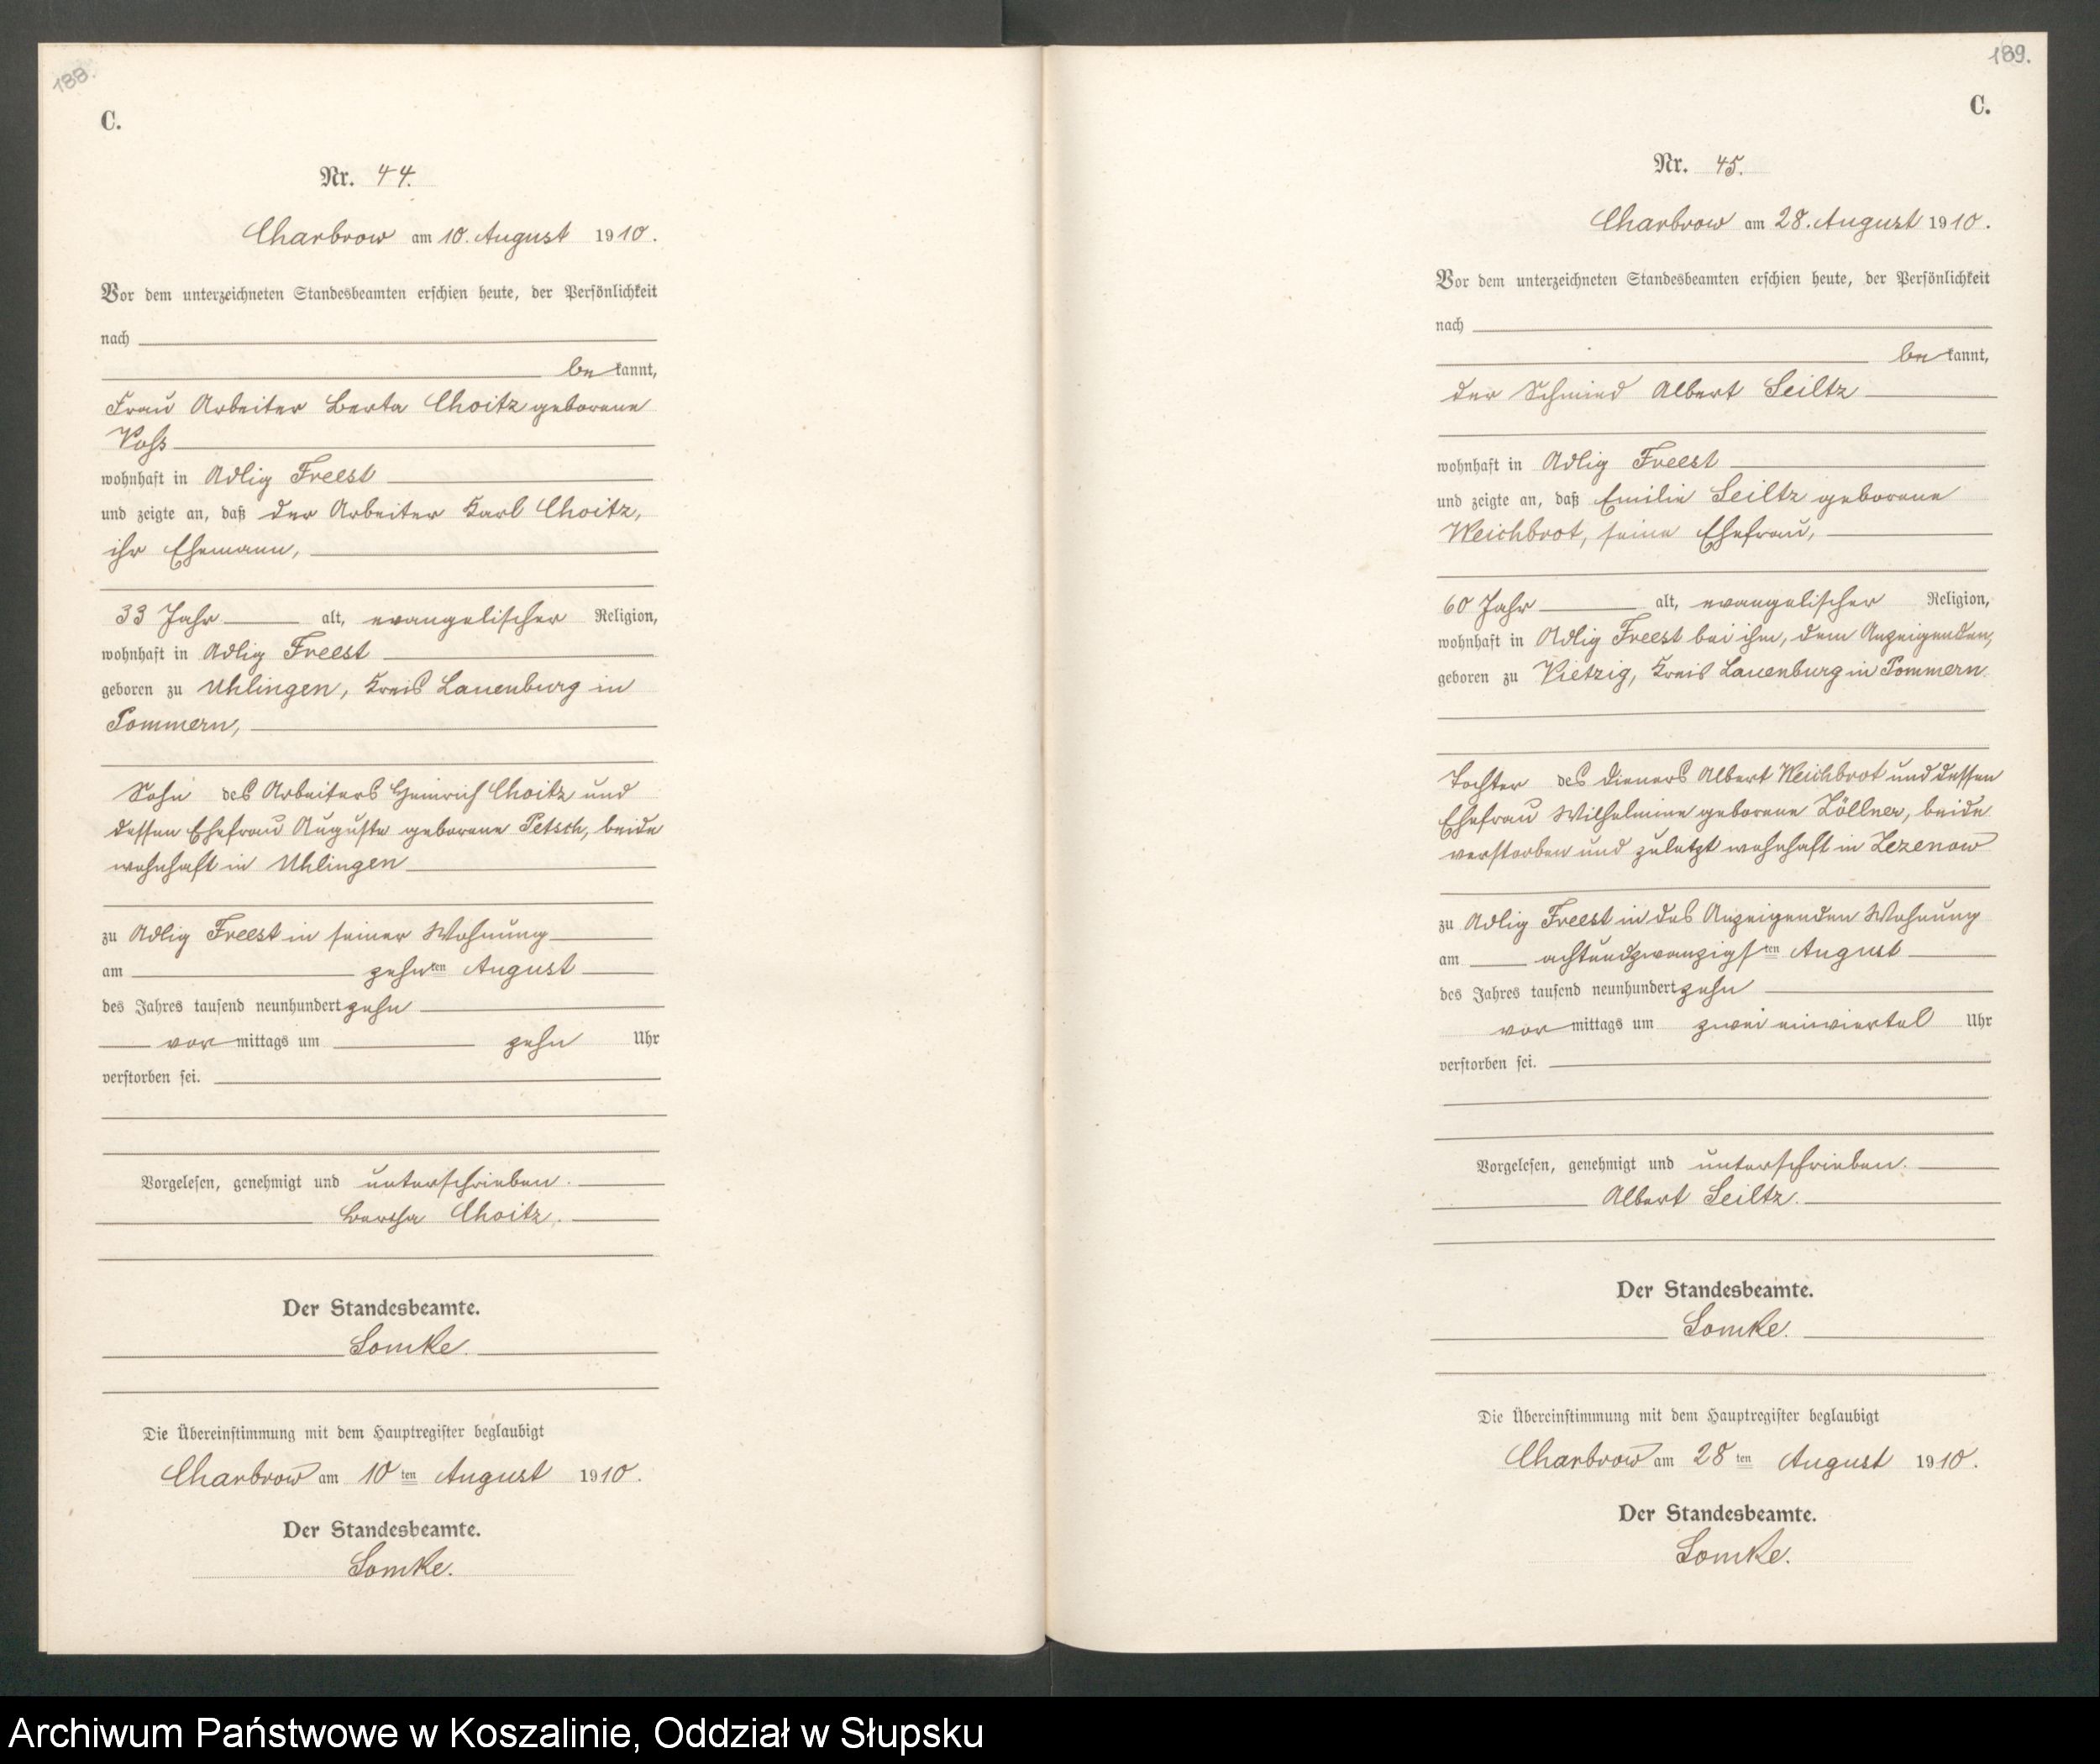 188.
C.
Nr. 44.
Charbrow am 10. August 1910.
Vor dem unterzeichneten Standesbeamten erschien heute, der Persönlichkeit
nach
be kannt,
Frau Arbeiter Berta Choitz geborene
Voß
wohnhaft in Adlig Freest
und zeigte an, daß der Arbeiter Karl Choitz,
ihr Ehemann,
33 Jahr alt, evangelischer Religion,
wohnhaft in Adlig Freest
geboren zu Uhlingen, Kreis Lauenburg in
Pommern,
Sohn des Arbeiters Heinrich Choitz und
dessen Ehefrau Auguste geborene Petsch, beide
wohnhaft in Uhlingen
zu Adlig Freest in seiner Wohnung
am zehnten August
des Jahres tausend neunhundert zehn
vor mittags um zehn Uhr
verstorben sei.
Vorgelesen, genehmigt und unterschrieben.
Bertha Choitz.
Der Standesbeamte.
Lomke.
Die Übereinstimmung mit dem Hauptregister beglaubigt
Charbrow am 10ten August 1910.
Der Standesbeamte.
Lomke.
189.
C.
Nr. 45.
Charbrow am 28. August 1910.
Vor dem unterzeichneten Standesbeamten erschien heute, der Persönlichkeit
nach
be kannt,
der Schmied Albert Seiltz
wohnhaft in Adlig Freest
und zeigte an, daß Emilie Seiltz geborene
Weichbrot, seine Ehefrau,
60 Jahr alt, evangelischer Religion,
wohnhaft in Adlig Freest bei ihm, dem Anzeigenden,
geboren zu Vietzig, Kreis Lauenburg in Pommern
Tochter des Dieners Albert Weichbrot und dessen
Ehefrau Wilhelmine geborene Zöllner, beide
verstorben und zuletzt wohnhaft in Zezenow
zu Adlig Freest in des Anzeigenden Wohnung
am achtundzwanzigsten August
des Jahres tausend neunhundert zehn
vor mittags um zwei einviertel Uhr
verstorben sei.
Vorgelesen, genehmigt und unterschrieben.
Albert Seiltz.
Der Standesbeamte.
Lomke.
Die Übereinstimmung mit dem Hauptregister beglaubigt
Charbrow am 28ten August 1910.
Der Standesbeamte.
Lomke.
Archiwum Państwowe w Koszalinie, Oddział w Słupsku